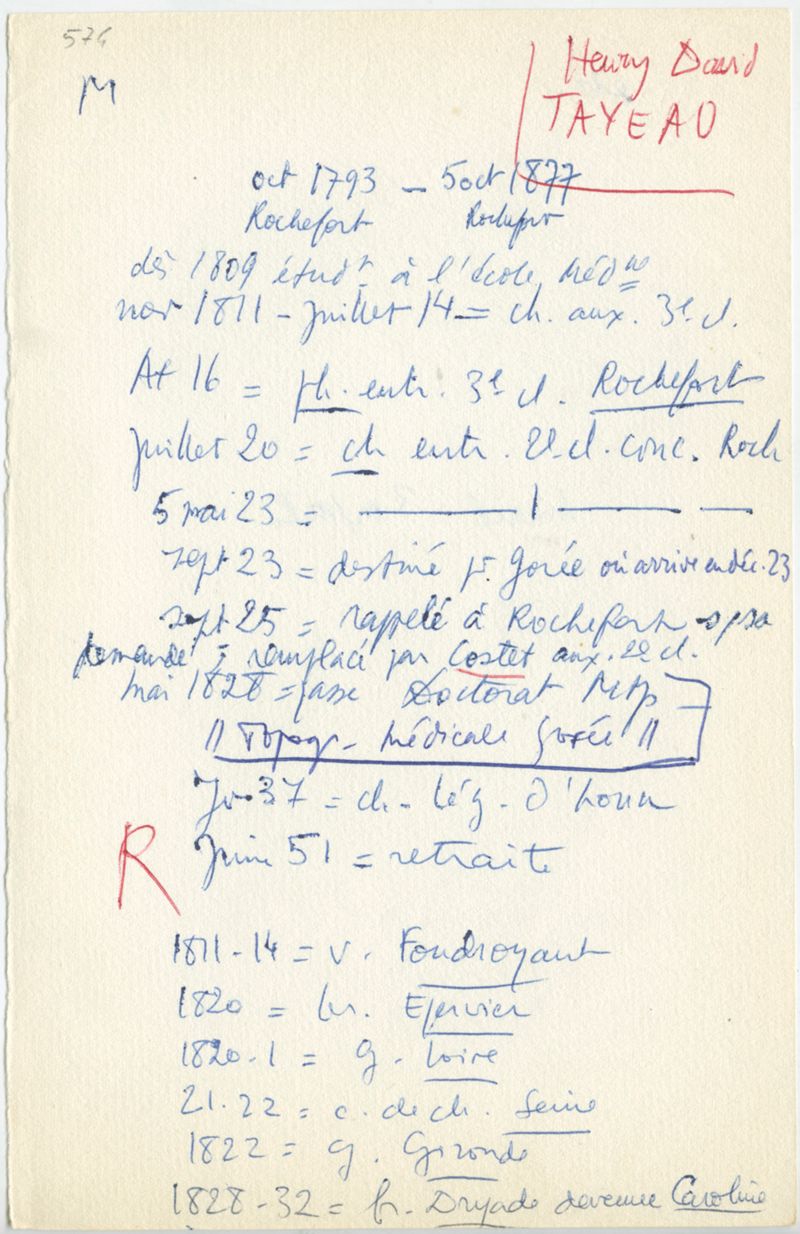 574
M
Henry David
TAYEAU
oct 1793 — 5 oct 1877
Rochefort Rochefor
dès 1809 étudt à l'école méd
nov 1811 - juillet 14 = ch. aux. 3e cl.
At 16 = ph. entr. 3e cl. Rochefort
juillet 20 = ch entr. 2e cl. conc. Roch
5 mai 23 = — 1 — —
sept 23 = destiné pr. Gorée où arrive en déc. 23
sept 25 = rappelé à Rochefort sa
demande & remplacé par Costet aux. 2e cl.
mai 1828 = passe Doctorat Mtp
"Topogr. médicale Gorée"
Jv. 37 = ch. Lég. d'honn
R
Juin 51 = retraite
1811-14 = v. Foudroyant
1820 = br. Epervier
1820-1 = g. Loire
21.22 = c. de ch. Seine
1822 = g. Gironde
1828-32 = fr. Dryade devenue Caroline